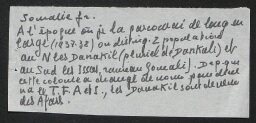 Somalie fr.
A l'époque où je la parcourais de long en
large (1937-38) on distingu. 2 populations
au N les Danakil (pluriel de Dankali) et
au Sud les Issas, rameau Somali). Depuis
cette colonie a changé de nom pour devenir
le T.F.A et I., les Danakil sont devenus
des Afars.